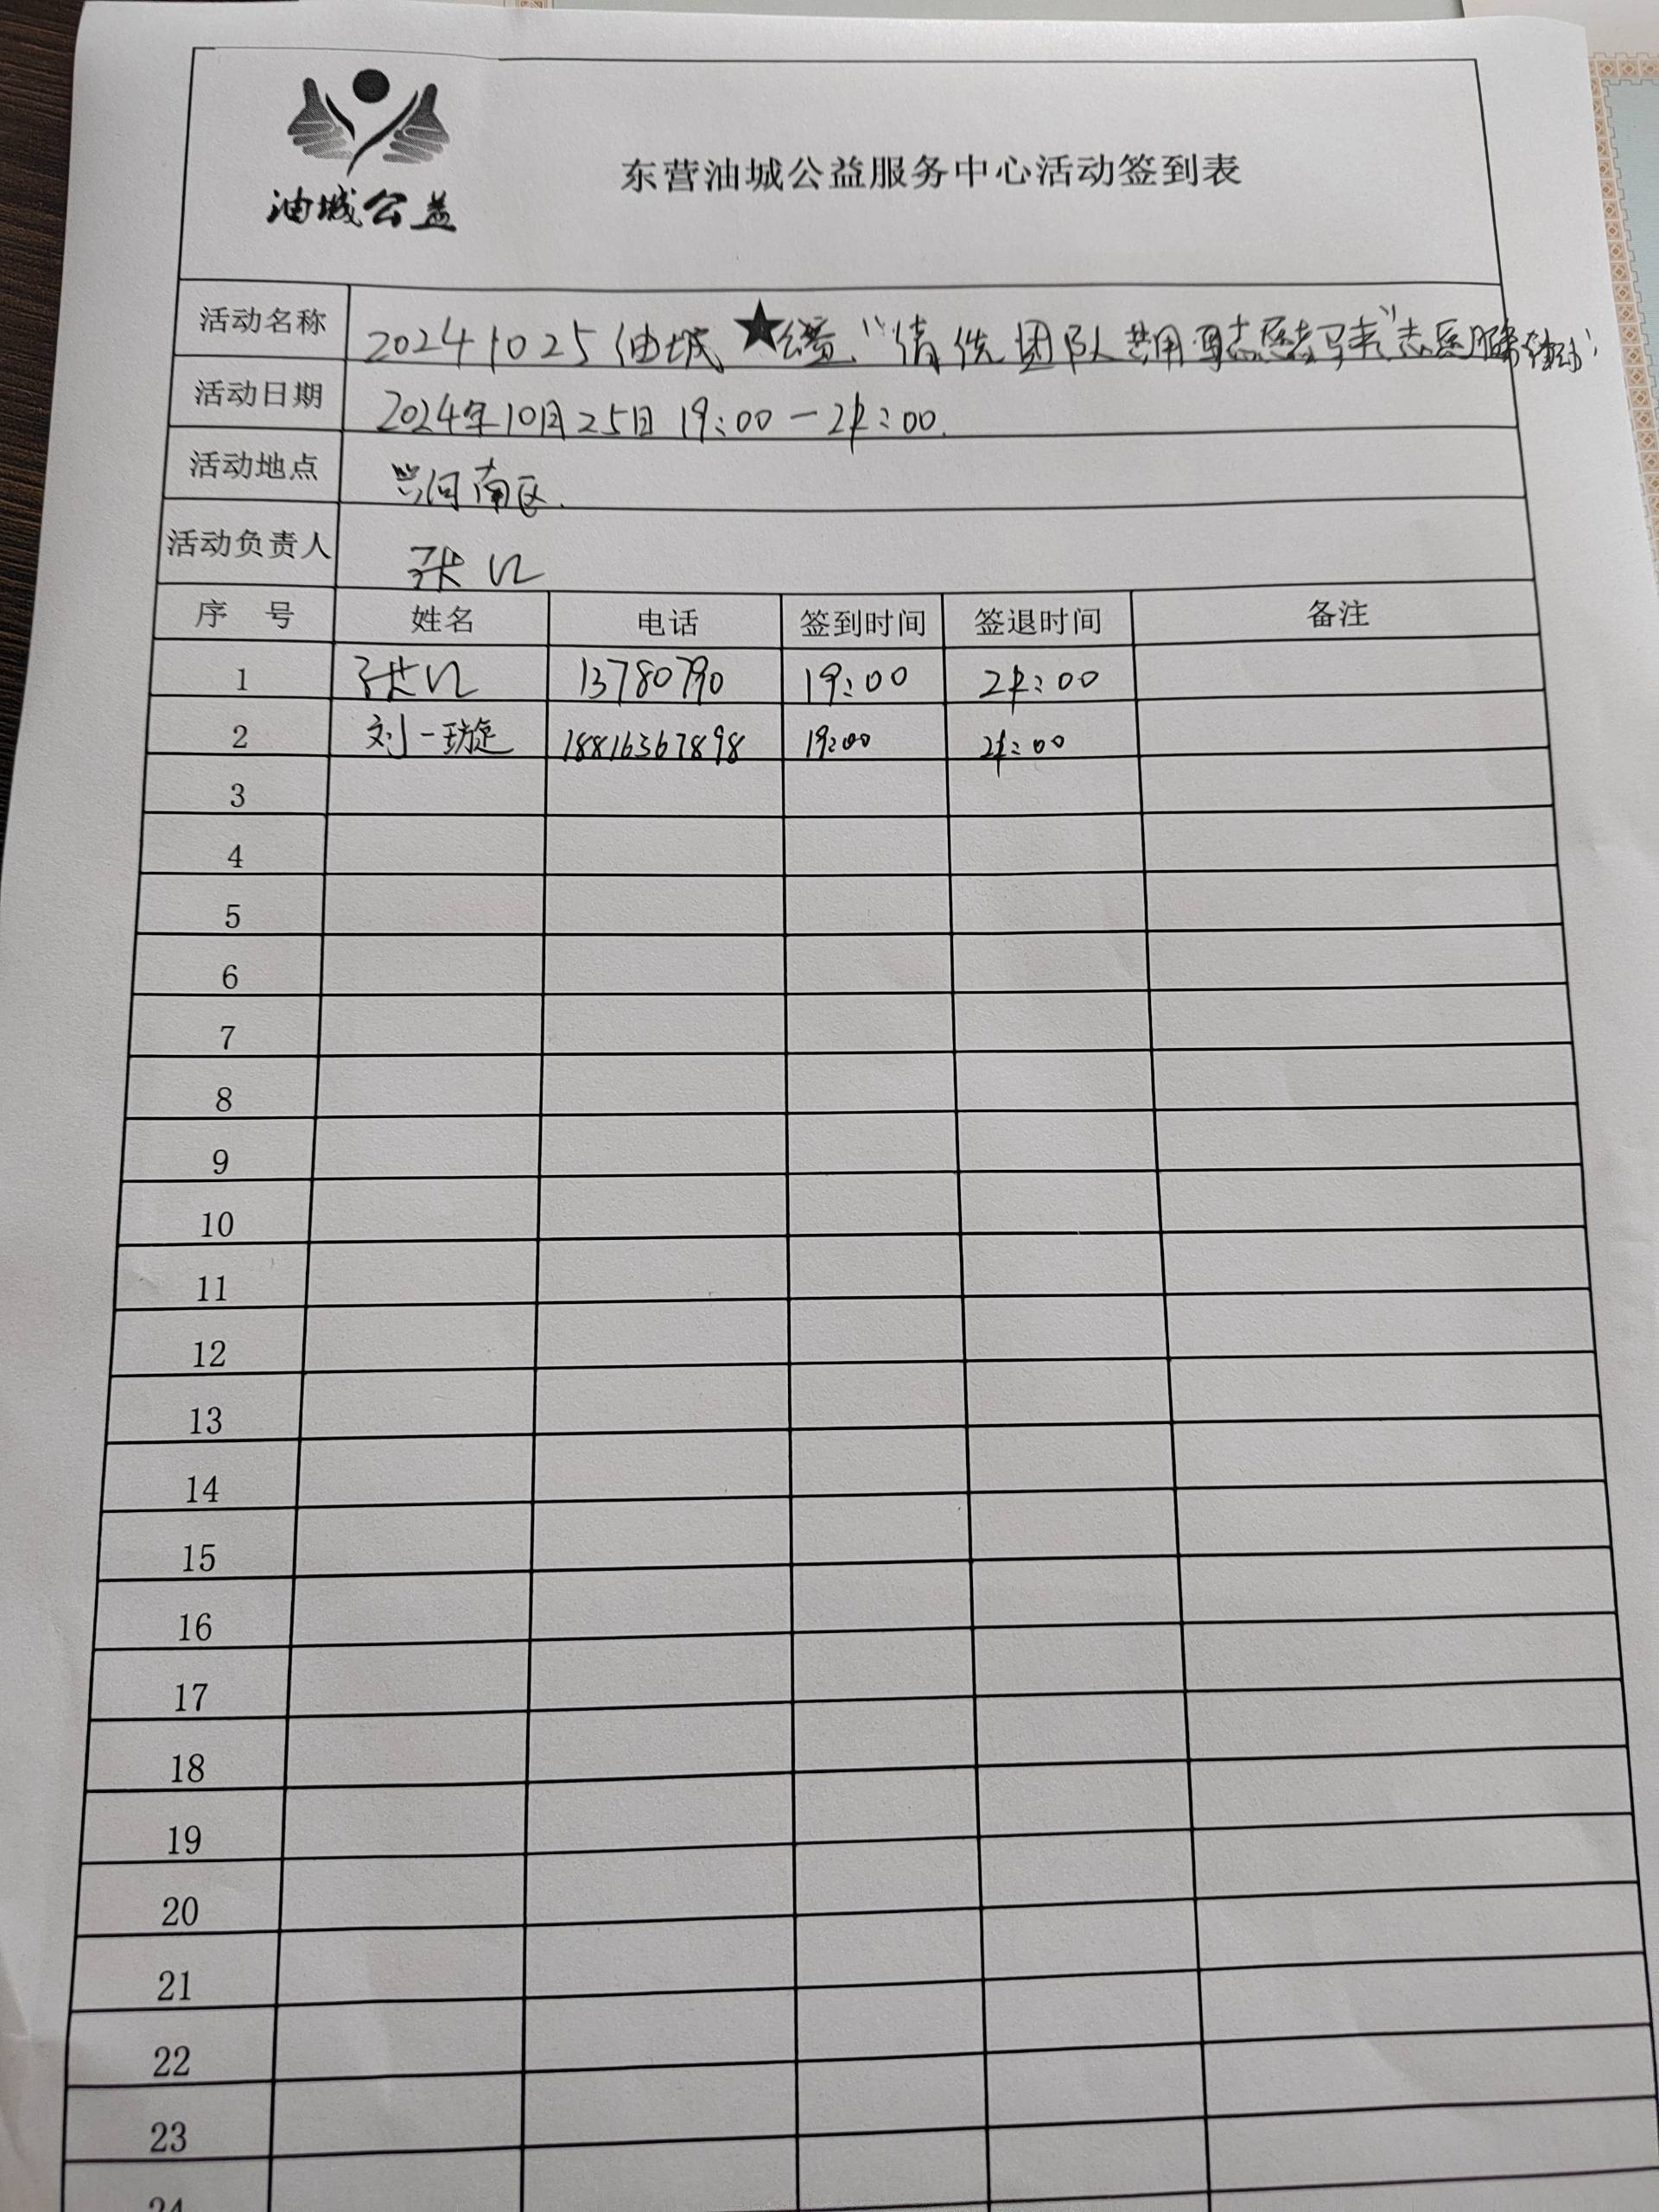 油城公益
东营油城公益服务中心活动签到表
活动名称 20241025油城★公益“清洗团队共用马志愿者马夹”志愿服务活动
活动日期 2024年10月25日 19:00-21:00
活动地点 河南区
活动负责人 张
序 号 姓名 电话 签到时间 签退时间 备注
1 张 13780790 19:00 21:00
2 刘一璇 18816367898 19:00 21:00
3
4
5
6
7
8
9
10
11
12
13
14
15
16
17
18
19
20
21
22
23
24